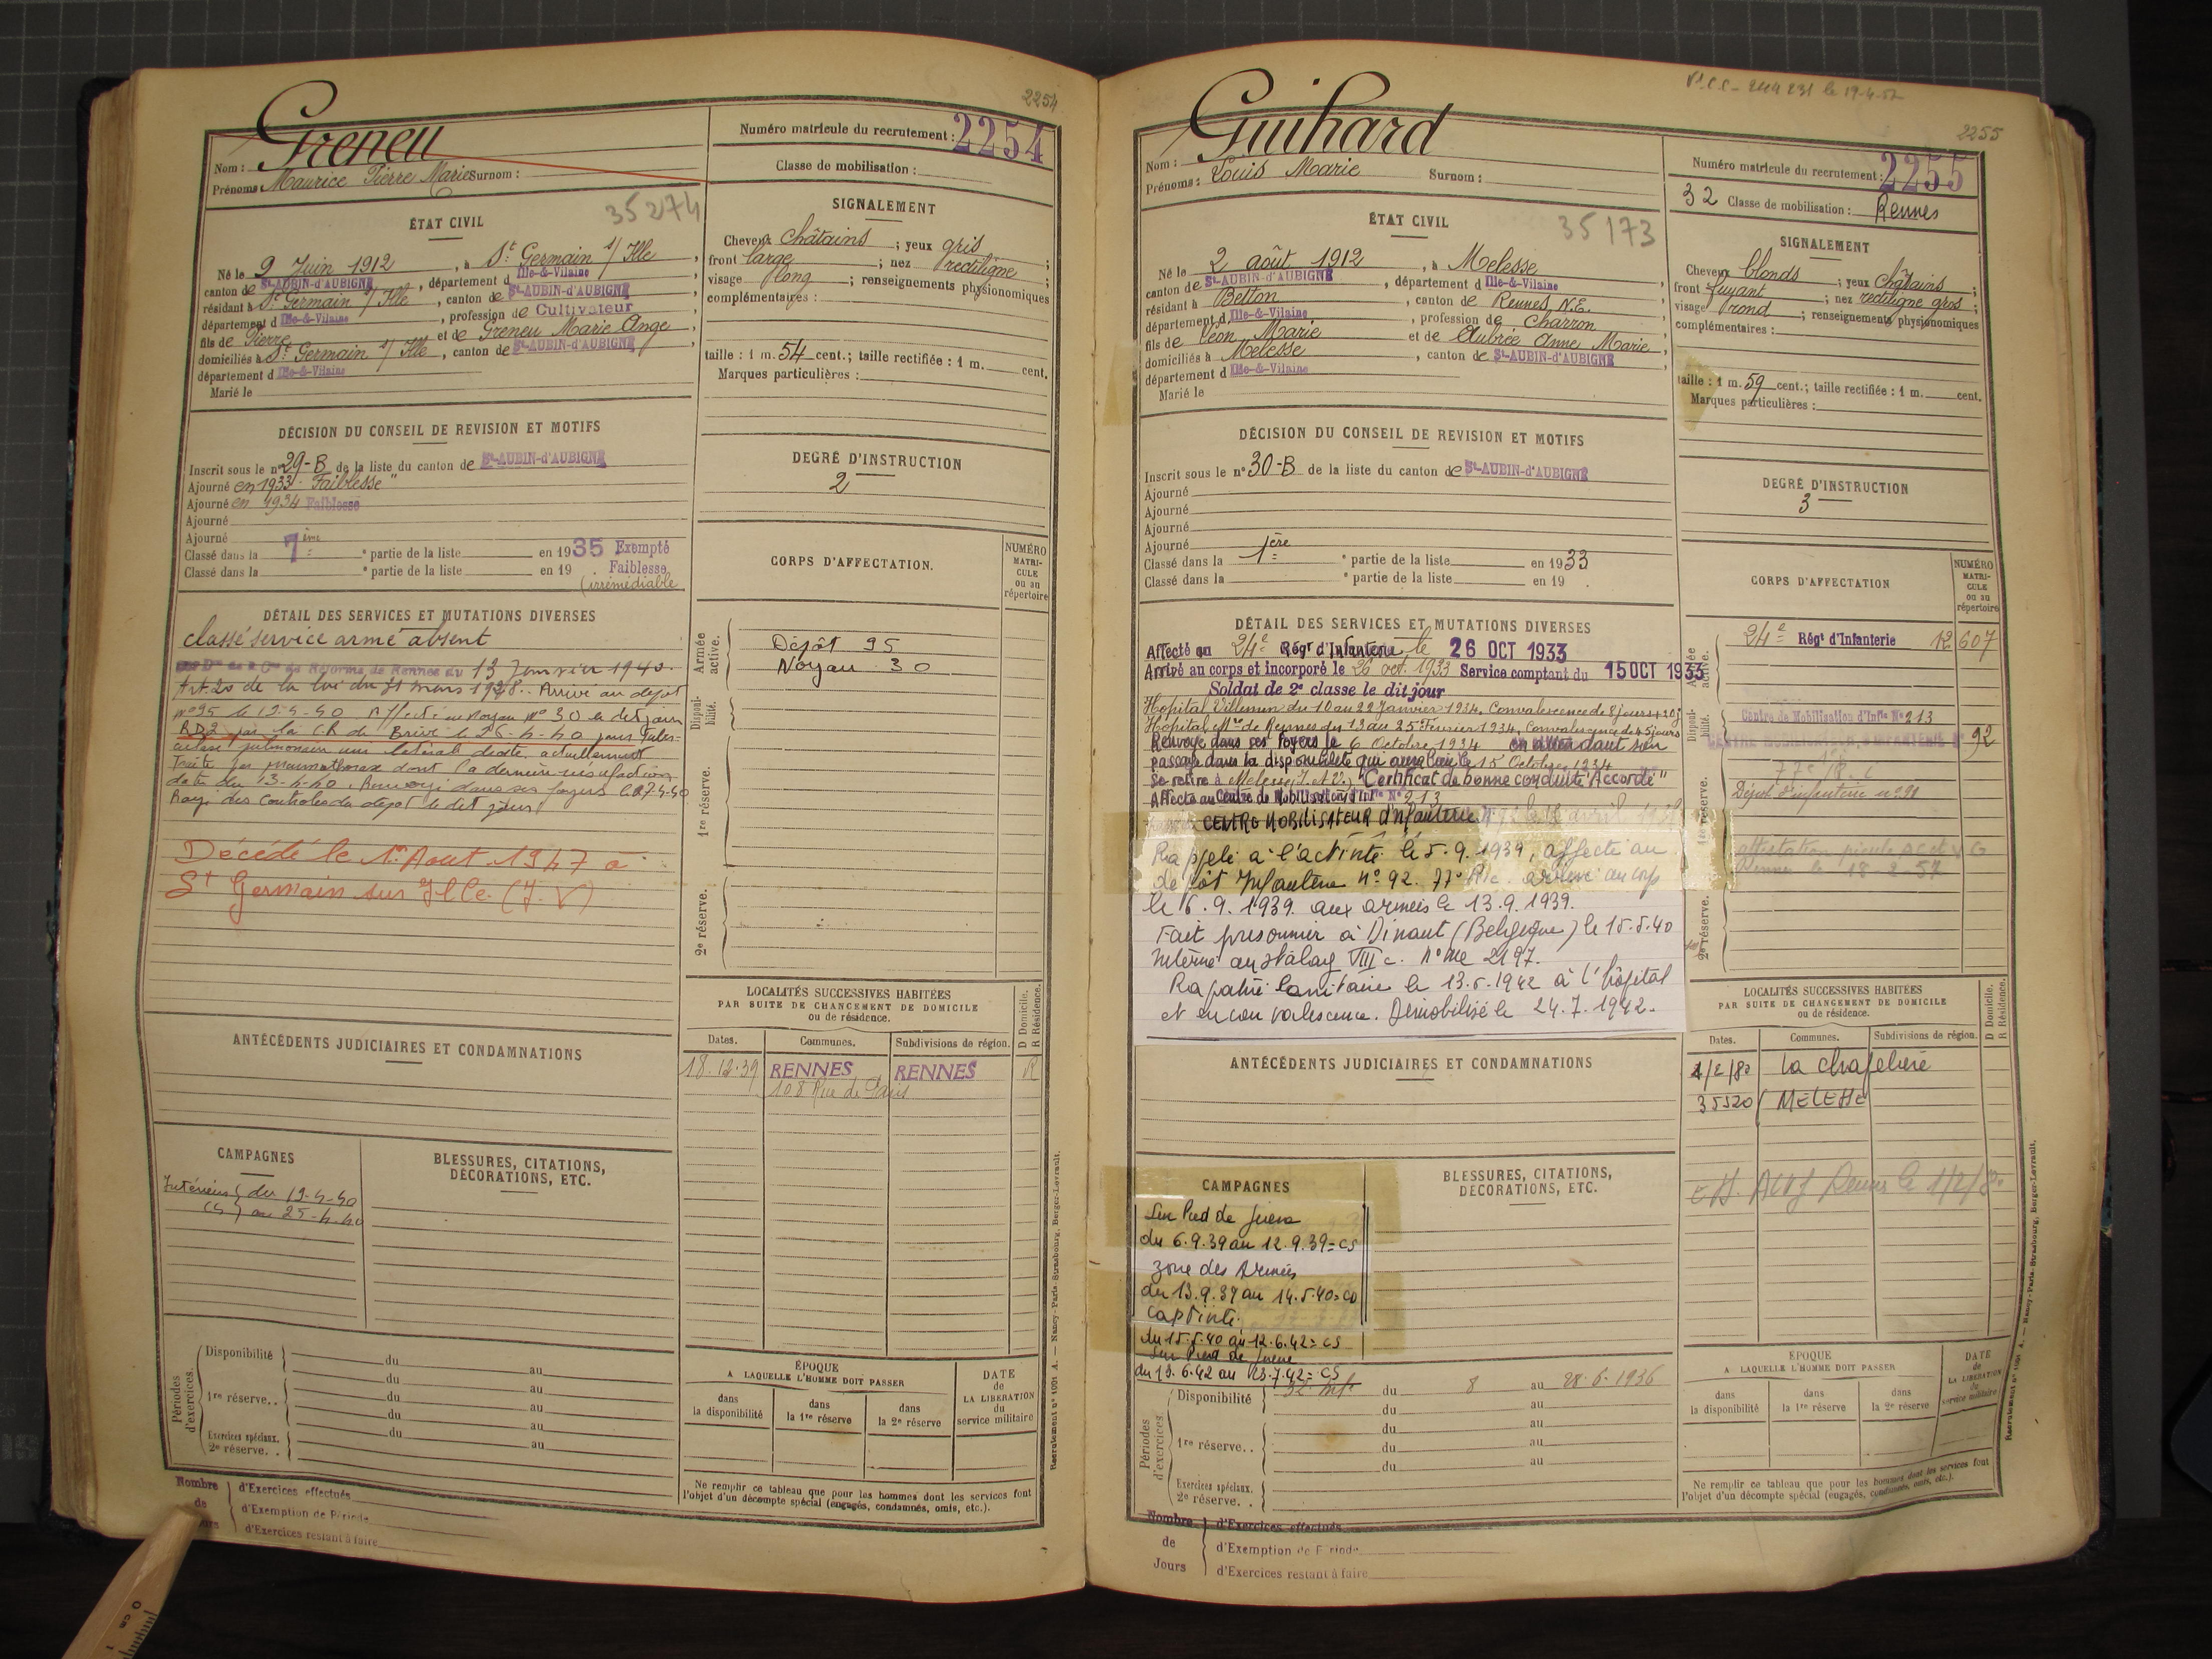 2254
Greneu
Nom :
Prénoms : Maurice Pierre Marie Surnom :
Numéro matricule du recrutement : 2254
Classe de mobilisation :
ÉTAT CIVIL
35274
Né le 9 Juin 1912, à St Germain s/ Ille,
canton de St-AUBIN-d'AUBIGNÉ, département d Ille-&-Vilaine
résidant à St Germain s/ Ille, canton de St-AUBIN-d'AUBIGNÉ,
département d Ille-&-Vilaine, profession de Cultivateur
fils de Pierre et de Greneu Marie Ange,
domiciliés à St Germain s/ Ille, canton de St-AUBIN-d'AUBIGNÉ,
département d Ille-&-Vilaine
Marié le
SIGNALEMENT
Cheveux châtains ; yeux gris ;
front large ; nez rectiligne ;
visage long ; renseignements physionomiques
complémentaires :
taille : 1 m. 54 cent.; taille rectifiée : 1 m. cent.
Marques particulières :
DÉCISION DU CONSEIL DE REVISION ET MOTIFS
Inscrit sous le n° 29-B de la liste du canton de St-AUBIN-d'AUBIGNÉ
Ajourné en 1933 "Faiblesse"
Ajourné en 1934 Faiblesse
Ajourné
Ajourné
Classé dans la 7ème partie de la liste en 1935 Exempté
Classé dans la e partie de la liste en 19 Faiblesse
(irrémédiable
DEGRÉ D'INSTRUCTION
2
DÉTAIL DES SERVICES ET MUTATIONS DIVERSES
classé service armé absent
de Réforme de Rennes du 13 Janvier 1940.
Art. 20 de la loi du 31 mars 1928. Arrivé au dépôt
n° 95 le 19-4-40. Affecté au Noyau n° 30 le dit jour
RD2 par la C.R. de Brive le
culose pulmonaire unilatérale droite actuellement
traité par pneumothorax dont la dernière insufflation
date du 13-4-40. Renvoyé dans ses foyers
Rayé des contrôles du dépôt le dit jour.
Décédé le 1er Aout 1947 à
St Germain sur Ille. (I.V)
CORPS D'AFFECTATION.
NUMÉRO MATRICULE ou au répertoire
Armée active.
Dépôt 95
Noyau 30
Disponibilité.
1re réserve.
2e réserve.
ANTÉCÉDENTS JUDICIAIRES ET CONDAMNATIONS
LOCALITÉS SUCCESSIVES HABITÉES
PAR SUITE DE CHANGEMENT DE DOMICILE
ou de résidence.
D Domicile.
R Résidence.
Dates. Communes. Subdivisions de région.
18.12.39 RENNES RENNES R
108 Rue de Paris
CAMPAGNES
Intérieur du 19-4-40
CS au 25-4-40
BLESSURES, CITATIONS,
DÉCORATIONS, ETC.
Périodes d'exercices.
Disponibilité du au
du au
1re réserve.. du au
du au
Exercices spéciaux. du au
2e réserve..
ÉPOQUE
A LAQUELLE L'HOMME DOIT PASSER
dans la disponibilité
dans la 1re réserve
dans la 2e réserve
DATE
de
LA LIBÉRATION
du
service militaire
Nombre de Jours
d'Exercices effectués
d'Exemption de Période
d'Exercices restant à faire
Ne remplir ce tableau que pour les hommes dont les services font
l'objet d'un décompte spécial (engagés, condamnés, omis, etc.).
Recrutement n° 1001 A. — Nancy-Paris-Strasbourg, Berger-Levrault.
2255
Guihard
Nom :
Prénoms : Louis Marie Surnom :
Numéro matricule du recrutement : 2255
32 Classe de mobilisation : Rennes
ÉTAT CIVIL
35173
Né le 2 août 1912, à Melesse
canton de St-AUBIN-d'AUBIGNÉ, département d Ille-&-Vilaine
résidant à Betton, canton de Rennes N.E.
département d Ille-&-Vilaine, profession de Charron
fils de Léon Marie et de Aubrée Anne Marie,
domiciliés à Melesse, canton de St-AUBIN-d'AUBIGNÉ,
département d Ille-&-Vilaine
Marié le
SIGNALEMENT
Cheveux blonds ; yeux châtains ;
front fuyant ; nez rectiligne gros ;
visage rond ; renseignements physionomiques
complémentaires :
taille : 1 m. 59 cent.; taille rectifiée : 1 m. cent.
Marques particulières :
DÉCISION DU CONSEIL DE REVISION ET MOTIFS
Inscrit sous le n° 30-B de la liste du canton de St-AUBIN-d'AUBIGNÉ
Ajourné
Ajourné
Ajourné
Ajourné
Classé dans la 1ère partie de la liste en 1933
Classé dans la e partie de la liste en 19 .
DEGRÉ D'INSTRUCTION
3
DÉTAIL DES SERVICES ET MUTATIONS DIVERSES
Affecté au 24e Régt d'Infanterie le 26 OCT 1933
Arrivé au corps et incorporé le 26 oct. 1933 Service comptant du 15 OCT 1933
Soldat de 2e classe le dit jour
Hôpital Villemin du 10 au 22 Janvier 1934. Convalescence de 8 jours + 20 j
Hôpital Mre de Rennes du 12 au 25 Février 1934. Convalescence de 45 jours
Renvoyé dans ses foyers le 6 Octobre 1934 en attendant son
passage dans la disponibilité qui aura lieu le 15 Octobre 1934
Se retire à Melesse, I. et V. "Certificat de bonne conduite Accordé"
Affecté au Centre de Mobilisation d'Infie N° 213
CENTRE MOBILISATEUR d'Infanterie
Rappelé à l'activité le 5.9.1939, affecté au
dépôt Infanterie n° 92. 77e Ric. arrivé au corps
le 6.9.1939. aux armées le 13.9.1939.
Fait prisonnier à Dinant (Belgique) le 15.5.40
Interné au stalag VIII c. n° mle 2197.
Rapatrié sanitaire le 13.6.1942 à l'hôpital
et en convalescence. Démobilisé le 24.7.1942.
CORPS D'AFFECTATION
NUMÉRO MATRICULE ou au répertoire
24e Régt d'Infanterie 12 607
Centre de Mobilisation d'Infie N° 213
CENTRE MOBILISATEUR D'INFANTERIE N° 92
Dépôt d'infanterie n° 91
attestation
Rennes le 18-2-57
1re réserve.
2e réserve.
ANTÉCÉDENTS JUDICIAIRES ET CONDAMNATIONS
LOCALITÉS SUCCESSIVES HABITÉES
PAR SUITE DE CHANGEMENT DE DOMICILE
ou de résidence.
D Domicile.
R Résidence.
Dates. Communes. Subdivisions de région.
1/2/80 La
35520 MELESSE
CAMPAGNES
Sur Pied de guerre
du 6.9.39 au 12.9.39=CS
Zone des Armées
du 13.9.39 au 14.5.40=CD
captivité
du 15.5.40 au 12.6.42=CS
Sur Pied de guerre
du 13.6.42 au 23.7.42=CS
BLESSURES, CITATIONS,
DÉCORATIONS, ETC.
Périodes d'exercices.
Disponibilité du 8 au 28-6-1936
du au
1re réserve.. du au
du au
du au
Exercices spéciaux.
2e réserve..
ÉPOQUE
A LAQUELLE L'HOMME DOIT PASSER
dans la disponibilité
dans la 1re réserve
dans la 2e réserve
DATE
de
LA LIBÉRATION
du
service militaire
Nombre de Jours
d'Exercices effectués
d'Exemption de Période
d'Exercices restant à faire
Ne remplir ce tableau que pour les hommes dont les services font
l'objet d'un décompte spécial (engagés, condamnés, omis, etc.).
Recrutement n° 1001 A. — Nancy-Paris-Strasbourg, Berger-Levrault.